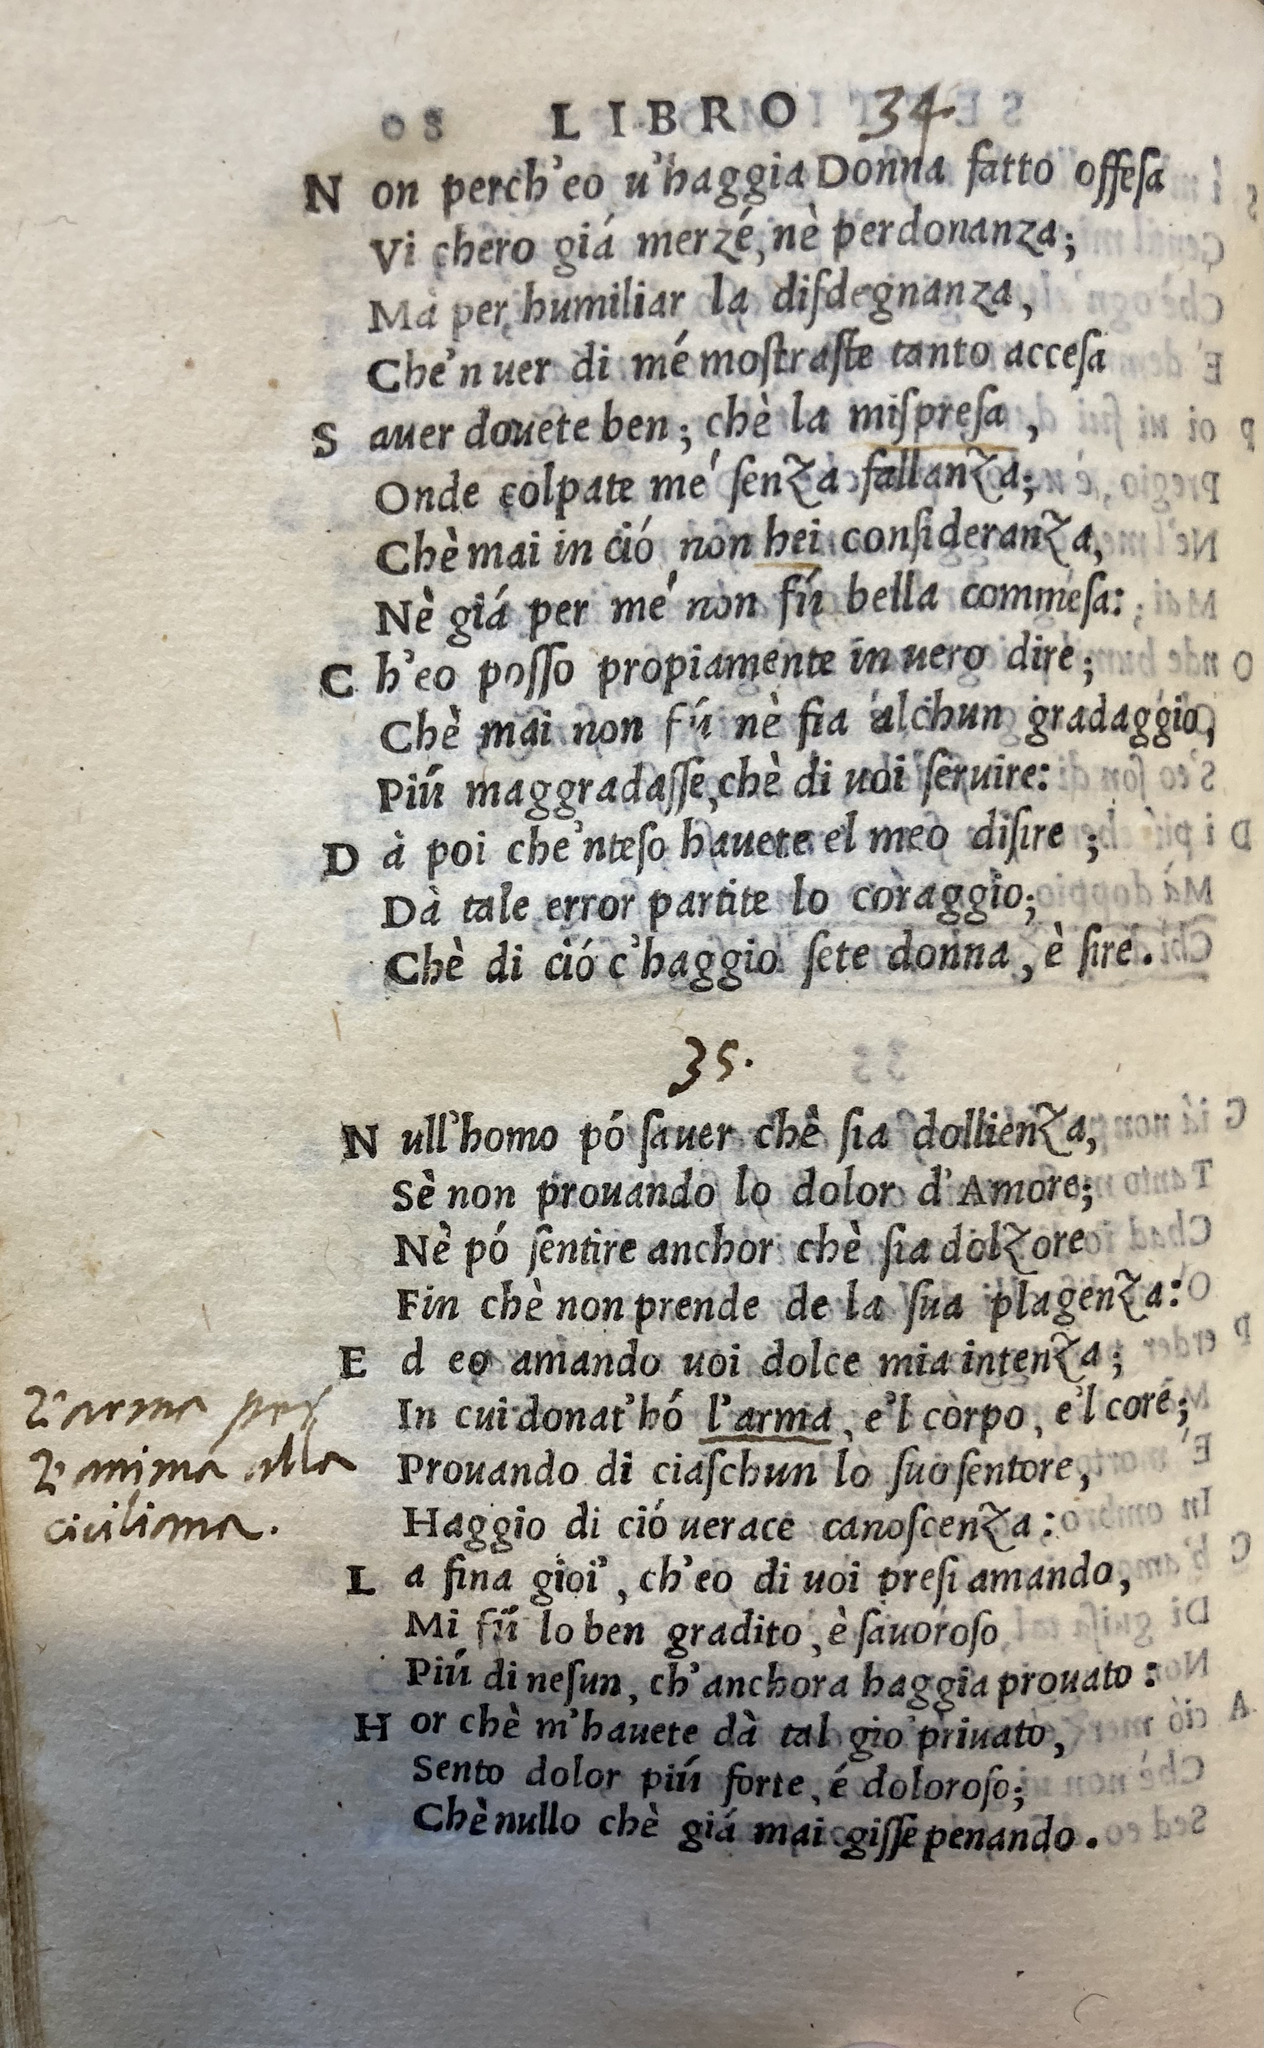 LIBRO 34.
Non perch'eo u'haggia Donna fatto offeſa
Vi chero giá merzé, nè perdonanza;
Mà per humiliar la diſdegnanza,
Che'n uer di mé moſtraſte tanto acceſa
Sauer douete ben; chè la miſpreſa,
Onde colpate mé ſenza fallanza;
Chè mai in ció non hei conſideranza,
Nè giá per mé non fú bella commeſa:
Ch'eo poſſo propiamente in uero dire;
Chè mai non fú nè ſia alchun gradaggio,
Piú maggradaſſe, chè di uoi ſeruire:
Dà poi che'nteſo hauete el meo diſire;
Dà tale error partite lo coraggio;
Chè di ció c'haggio ſete donna, è ſire.
35.
Null'homo pó ſauer chè ſia dollienza,
Sè non prouando lo dolor d'Amore;
Nè pó ſentire anchor chè ſia dolzore
Fin chè non prende de la ſua plagenza:
Ed eo amando uoi dolce mia intenza;
In cui donat'hó l'arma, e'l còrpo, e'l core;
Prouando di ciaſchun lo ſuo ſentore,
Haggio di ció uerace canoſcenza:
La fina gioi', ch'eo di uoi preſi amando,
Mi fú lo ben gradito, è ſauoroſo
Piú di neſun, ch'anchora haggia prouato:
Hor chè m'hauete dà tal gio' priuato,
Sento dolor piú forte, é doloroſo;
Chè nullo chè giá mai giſſe penando.
L'arma per
L'anima alla
ciciliana.